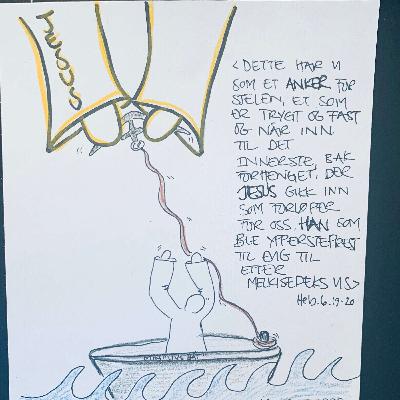 JESUS
<DETTE HAR VI
SOM ET ANKER FOR
SJELEN, ET SOM
ER TRYGT OG FAST
OG NÅR INN
TIL DET
INNERSTE, BAK
FORHENGET, DER
JESUS GIKK INN
SOM FORLØPER
FOR OSS, HAN SOM
BLE YPPERSTEPREST
TIL EVIG TID
ETTER
MELKISEDEKS VIS>
Heb. 6.19-20